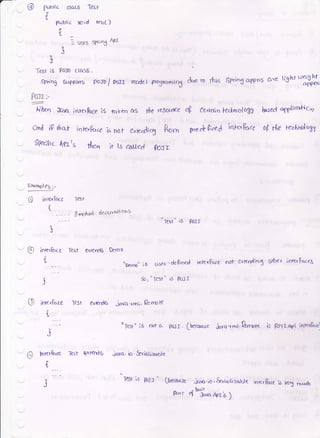 ④ public class Test
{
public void m1()
{
= uses spring API
}
}
Test is POJO class.
Spring supports POJO/POJI model programming due to this Spring appns are light weight appns
POJI :-
When Java interface is taken as the resource of certain technology based application
and if that interface is not extending from predefined interface of the technology
Specific API's then it is called POJI
Examples :-
① interface Test
{
---- // method declarations
}
"Test" is POJI
② interface Test extends Demo
{
----
}
"Demo" is user-defined interface not extending other interfaces
So, "Test" is POJI
③ interface Test extends java.rmi.Remote
{
----
}
"Test" is not a POJI. (because java.rmi.Remote is RMI api interface)
④ Interface Test extends java.io.Serializable
{
----
}
Test is POJI (because java.io.Serializable interface is very much
Part of basic Java API's).